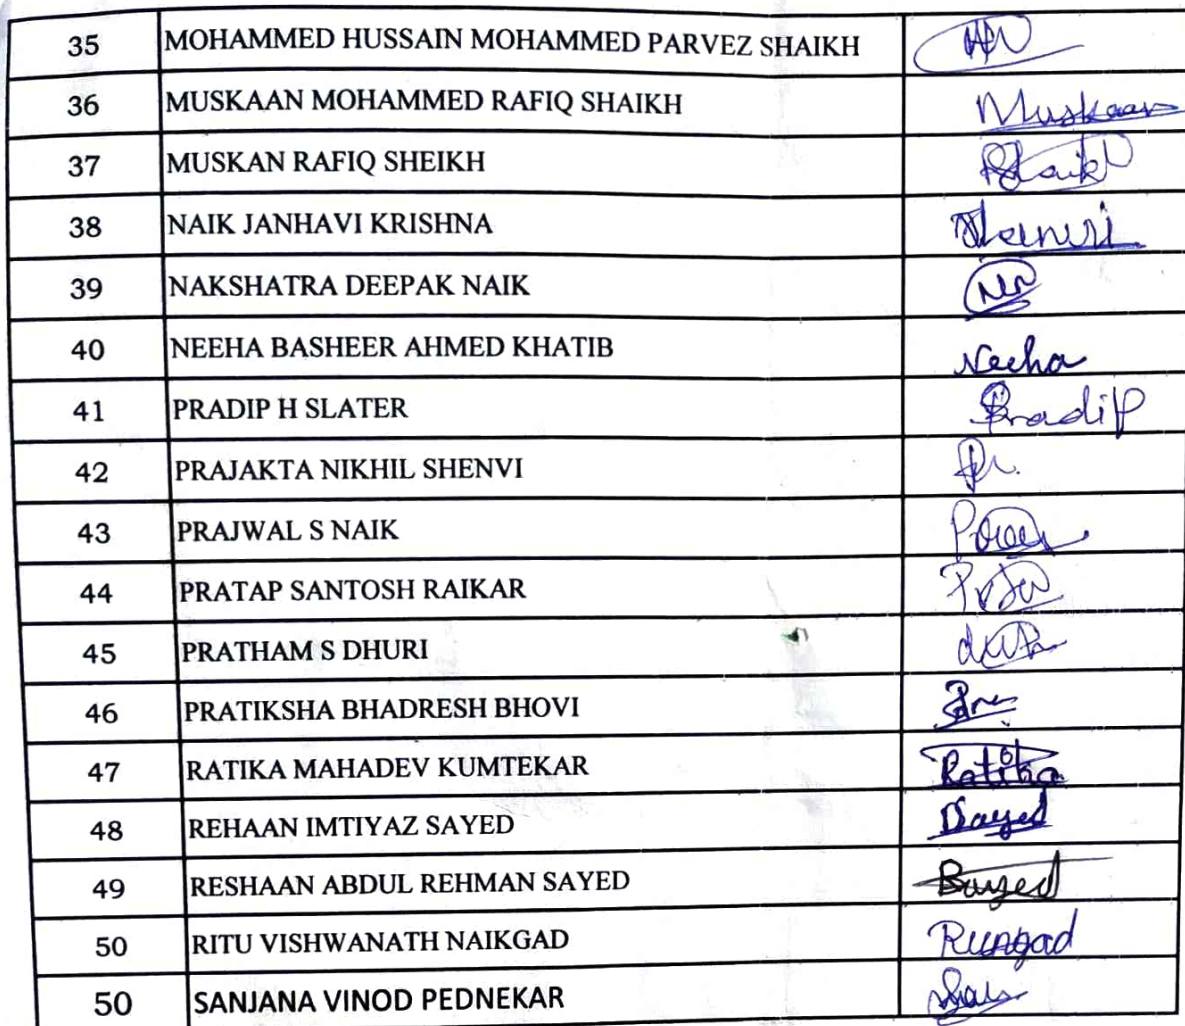 35 MOHAMMED HUSSAIN MOHAMMED PARVEZ SHAIKH
36 MUSKAAN MOHAMMED RAFIQ SHAIKH Muskaan
37 MUSKAN RAFIQ SHEIKH Shaikh
38 NAIK JANHAVI KRISHNA
39 NAKSHATRA DEEPAK NAIK
40 NEEHA BASHEER AHMED KHATIB Neeha
41 PRADIP H SLATER Pradip
42 PRAJAKTA NIKHIL SHENVI
43 PRAJWAL S NAIK
44 PRATAP SANTOSH RAIKAR
45 PRATHAM S DHURI
46 PRATIKSHA BHADRESH BHOVI
47 RATIKA MAHADEV KUMTEKAR Ratika
48 REHAAN IMTIYAZ SAYED Sayed
49 RESHAAN ABDUL REHMAN SAYED Sayed
50 RITU VISHWANATH NAIKGAD
50 SANJANA VINOD PEDNEKAR